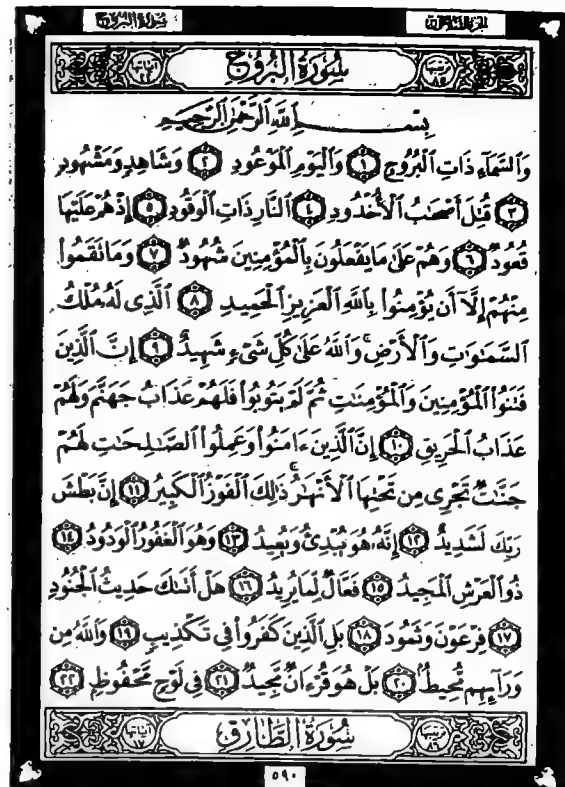 الجزء الثلاثون سورة البروج
ترتيبها ٨٥ سورة البروج آياتها ٢٢
بِسْمِ اللَّهِ الرَّحْمَٰنِ الرَّحِيمِ
وَٱلسَّمَآءِ ذَاتِ ٱلْبُرُوجِ ١ وَٱلْيَوْمِ ٱلْمَوْعُودِ ٢ وَشَاهِدٍ وَمَشْهُودٍ
٣ قُتِلَ أَصْحَٰبُ ٱلْأُخْدُودِ ٤ ٱلنَّارِ ذَاتِ ٱلْوَقُودِ ٥ إِذْ هُمْ عَلَيْهَا
قُعُودٌ ٦ وَهُمْ عَلَىٰ مَا يَفْعَلُونَ بِٱلْمُؤْمِنِينَ شُهُودٌ ٧ وَمَا نَقَمُوا۟
مِنْهُمْ إِلَّآ أَن يُؤْمِنُوا۟ بِٱللَّهِ ٱلْعَزِيزِ ٱلْحَمِيدِ ٨ ٱلَّذِى لَهُۥ مُلْكُ
ٱلسَّمَٰوَٰتِ وَٱلْأَرْضِ ۚ وَٱللَّهُ عَلَىٰ كُلِّ شَىْءٍ شَهِيدٌ ٩ إِنَّ ٱلَّذِينَ
فَتَنُوا۟ ٱلْمُؤْمِنِينَ وَٱلْمُؤْمِنَٰتِ ثُمَّ لَمْ يَتُوبُوا۟ فَلَهُمْ عَذَابُ جَهَنَّمَ وَلَهُمْ
عَذَابُ ٱلْحَرِيقِ ١٠ إِنَّ ٱلَّذِينَ ءَامَنُوا۟ وَعَمِلُوا۟ ٱلصَّٰلِحَٰتِ لَهُمْ
جَنَّٰتٌ تَجْرِى مِن تَحْتِهَا ٱلْأَنْهَٰرُ ۚ ذَٰلِكَ ٱلْفَوْزُ ٱلْكَبِيرُ ١١ إِنَّ بَطْشَ
رَبِّكَ لَشَدِيدٌ ١٢ إِنَّهُۥ هُوَ يُبْدِئُ وَيُعِيدُ ١٣ وَهُوَ ٱلْغَفُورُ ٱلْوَدُودُ ١٤
ذُو ٱلْعَرْشِ ٱلْمَجِيدُ ١٥ فَعَّالٌ لِّمَا يُرِيدُ ١٦ هَلْ أَتَىٰكَ حَدِيثُ ٱلْجُنُودِ
١٧ فِرْعَوْنَ وَثَمُودَ ١٨ بَلِ ٱلَّذِينَ كَفَرُوا۟ فِى تَكْذِيبٍ ١٩ وَٱللَّهُ مِن
وَرَآئِهِم مُّحِيطٌۢ ٢٠ بَلْ هُوَ قُرْءَانٌ مَّجِيدٌ ٢١ فِى لَوْحٍ مَّحْفُوظٍۭ ٢٢
ترتيبها ٨٦ سورة الطارق آياتها ١٧
٥٩٠